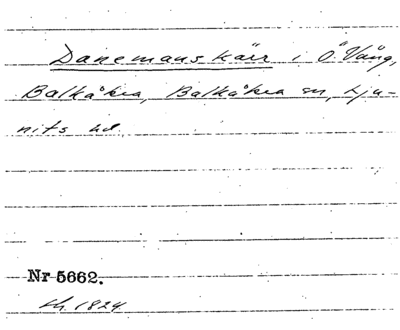 Danemanskärr i Ö. Vång,
Balkåkra, Balkåkra sn, Lju-
nits hd
Nr 5662.
Lh. 1824